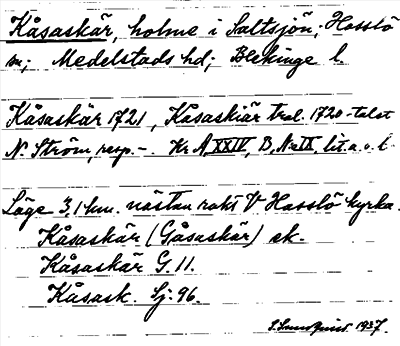 Kåsaskär, holme i Saltsjön; Hasslö
sn; Medelstads hd; Blekinge l.
Kåsaskär 1721, Kåsaskiär trol. 1720-talet
N. Ström, resp. -. Kr A, XXIV, B, N:o IX, lit. a. o. b
Läge 3,1 km. nästan rakt V Hasslö kyrka.
Kåsaskär (Gåsaskär) ek.
Kåsaskär G. 11.
Kåsask. Sj. 96.
S. Sundquist 1937.